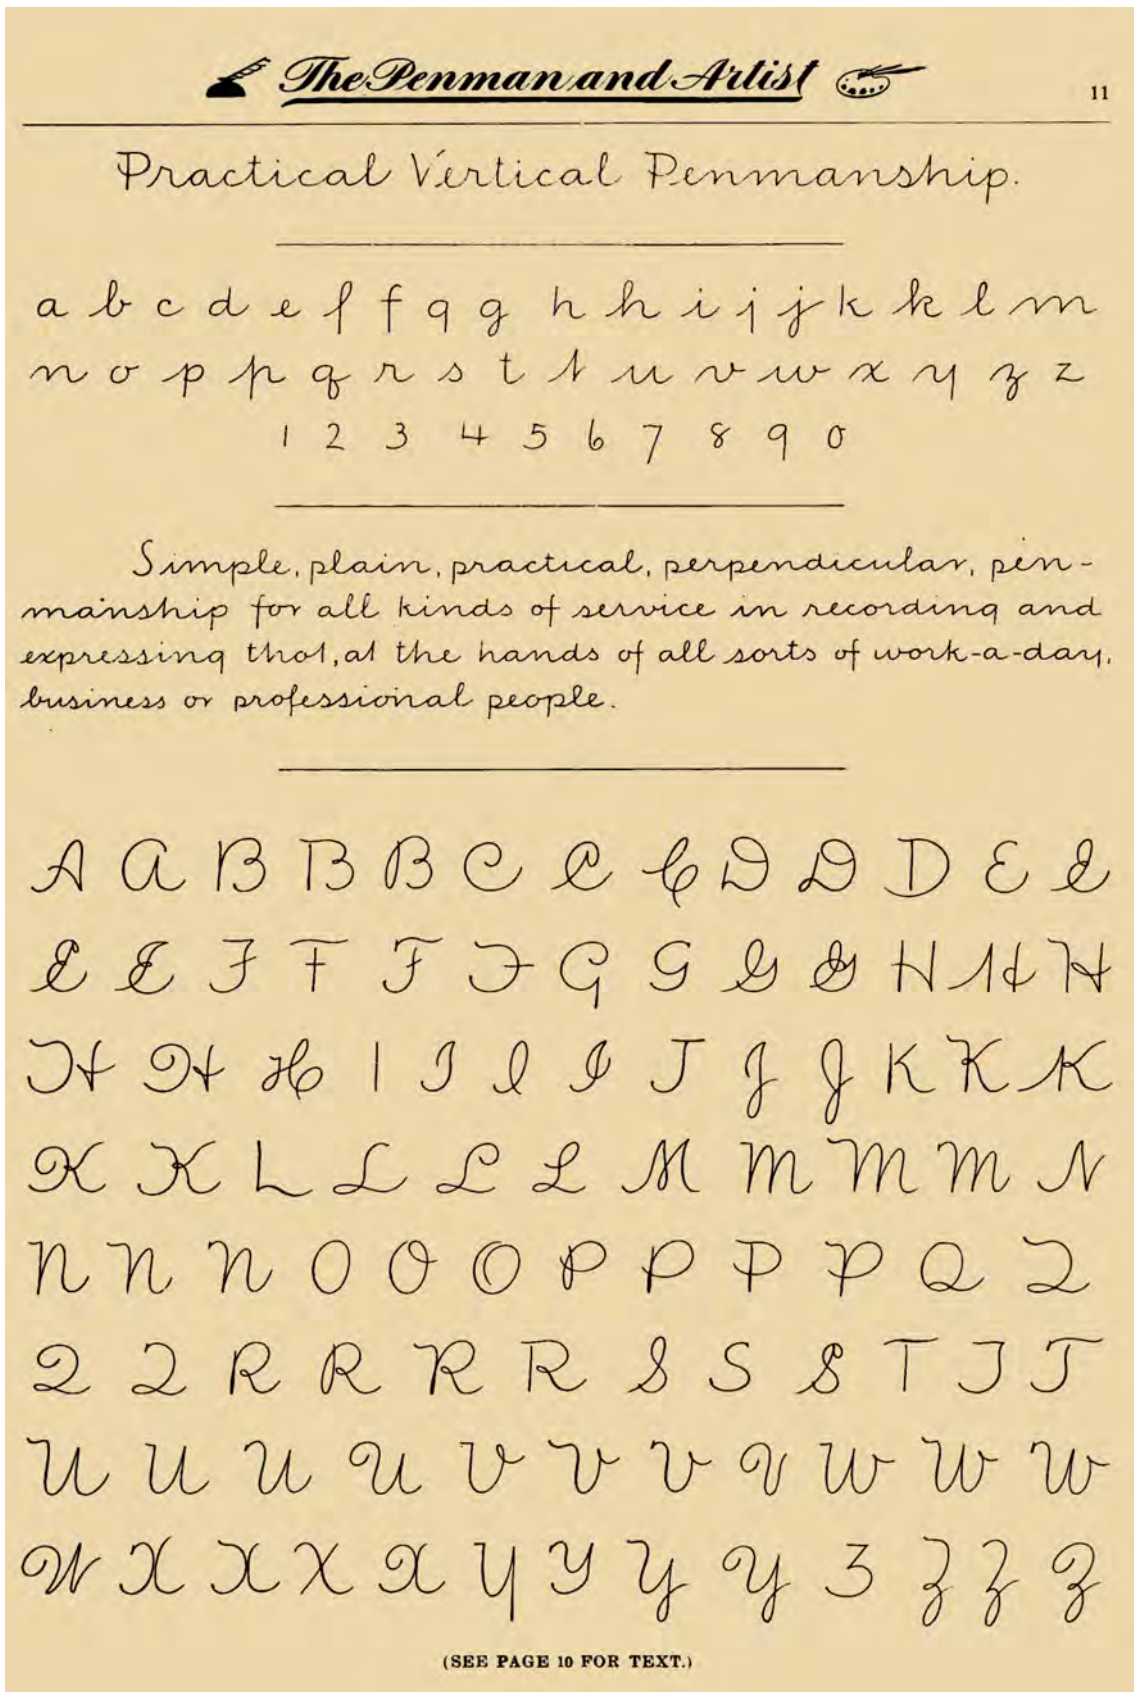 The Penman and Artist
11
Practical Vertical Penmanship.
a b c d e f f g g h h i j j k k l m
n o p p q r s t t u v w x y z z
1 2 3 4 5 6 7 8 9 0
Simple, plain, practical, perpendicular, pen-
manship for all kinds of service in recording and
expressing that, at the hands of all sorts of work-a-day,
business or professional people.
A A B B B C C C D D D E E
E E F F F F G G G G H H H
H H H I I I I J J J K K K
K K L L L L M M M M N
N N N O O O P P P P Q Q
Q Q R R R R S S S T T T
U U U U V V V V W W W
W X X X X Y Y Y Y Z Z Z Z
(SEE PAGE 10 FOR TEXT.)